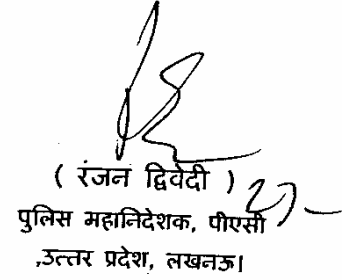 ( रंजन द्विवेदी )
पुलिस महानिदेशक, पीएसी
,उत्तर प्रदेश, लखनऊ।